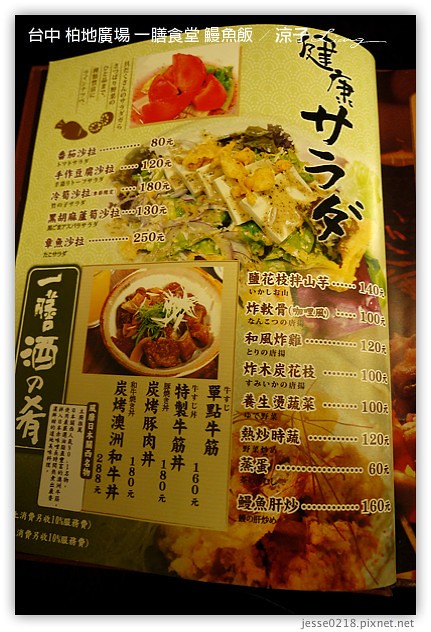 台中 柏地廣場 一膳食堂 鰻魚飯 ╱ 涼子
健康サラダ
番茄沙拉 80元
トマトサラダ
手作豆腐沙拉 120元
冷筍沙拉 180元
竹の子サラダ
黑胡麻蘆筍沙拉 130元
章魚沙拉 250元
たこサラダ
一膳酒の肴
鹽花枝拌山芋 140元
いかしお山
炸軟骨(咖哩風) 100元
なんこつの唐揚
和風炸雞 120元
とりの唐揚
炸木炭花枝 100元
すみいかの唐揚
養生燙蔬菜 100元
ゆで野菜
熱炒時蔬 120元
野菜炒め
蒸蛋 60元
鰻魚肝炒 160元
鰻の肝炒め
牛すじ
單點牛筋
牛すじ丼
特製牛筋丼 160元
豚焼き丼
炭烤豚肉丼 180元
和牛焼き丼
炭烤澳洲和牛丼 288元
180元
消費另收10%服務費)
消費另收10%服務費)
jesse0218.pixnet.net